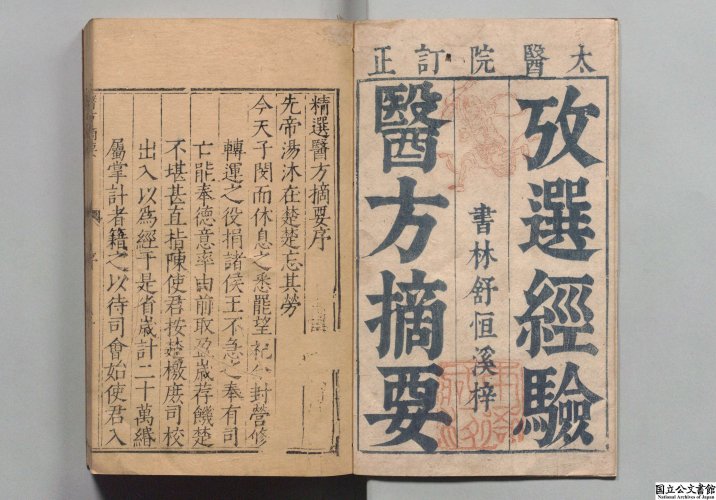 太醫院訂正
攷選經驗
醫方摘要
書林舒恒溪梓
精選醫方摘要序
先帝湯沐在楚楚忘其勞
今天子閔而休息之悉罷望祀
封營修
轉運之役捐諸侯王不急之奉有司
亡能奉德意率由前取盈歲存饑楚
不堪甚直指陳使君按楚檄庶司校
出入以為經于是省歲計二十萬緡
屬掌計者籍之以待司會始使君入
国立公文書館
National Archives of Japan